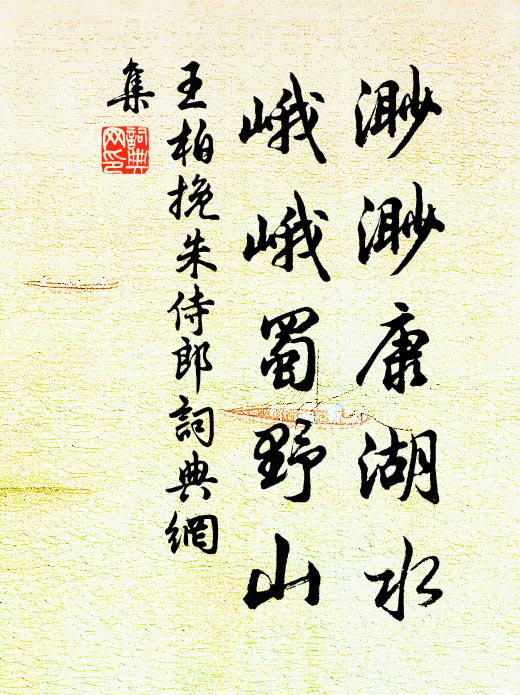 渺渺康湖水
峨峨蜀野山
王柏挽朱侍郎詞典網
集
詞典
网印